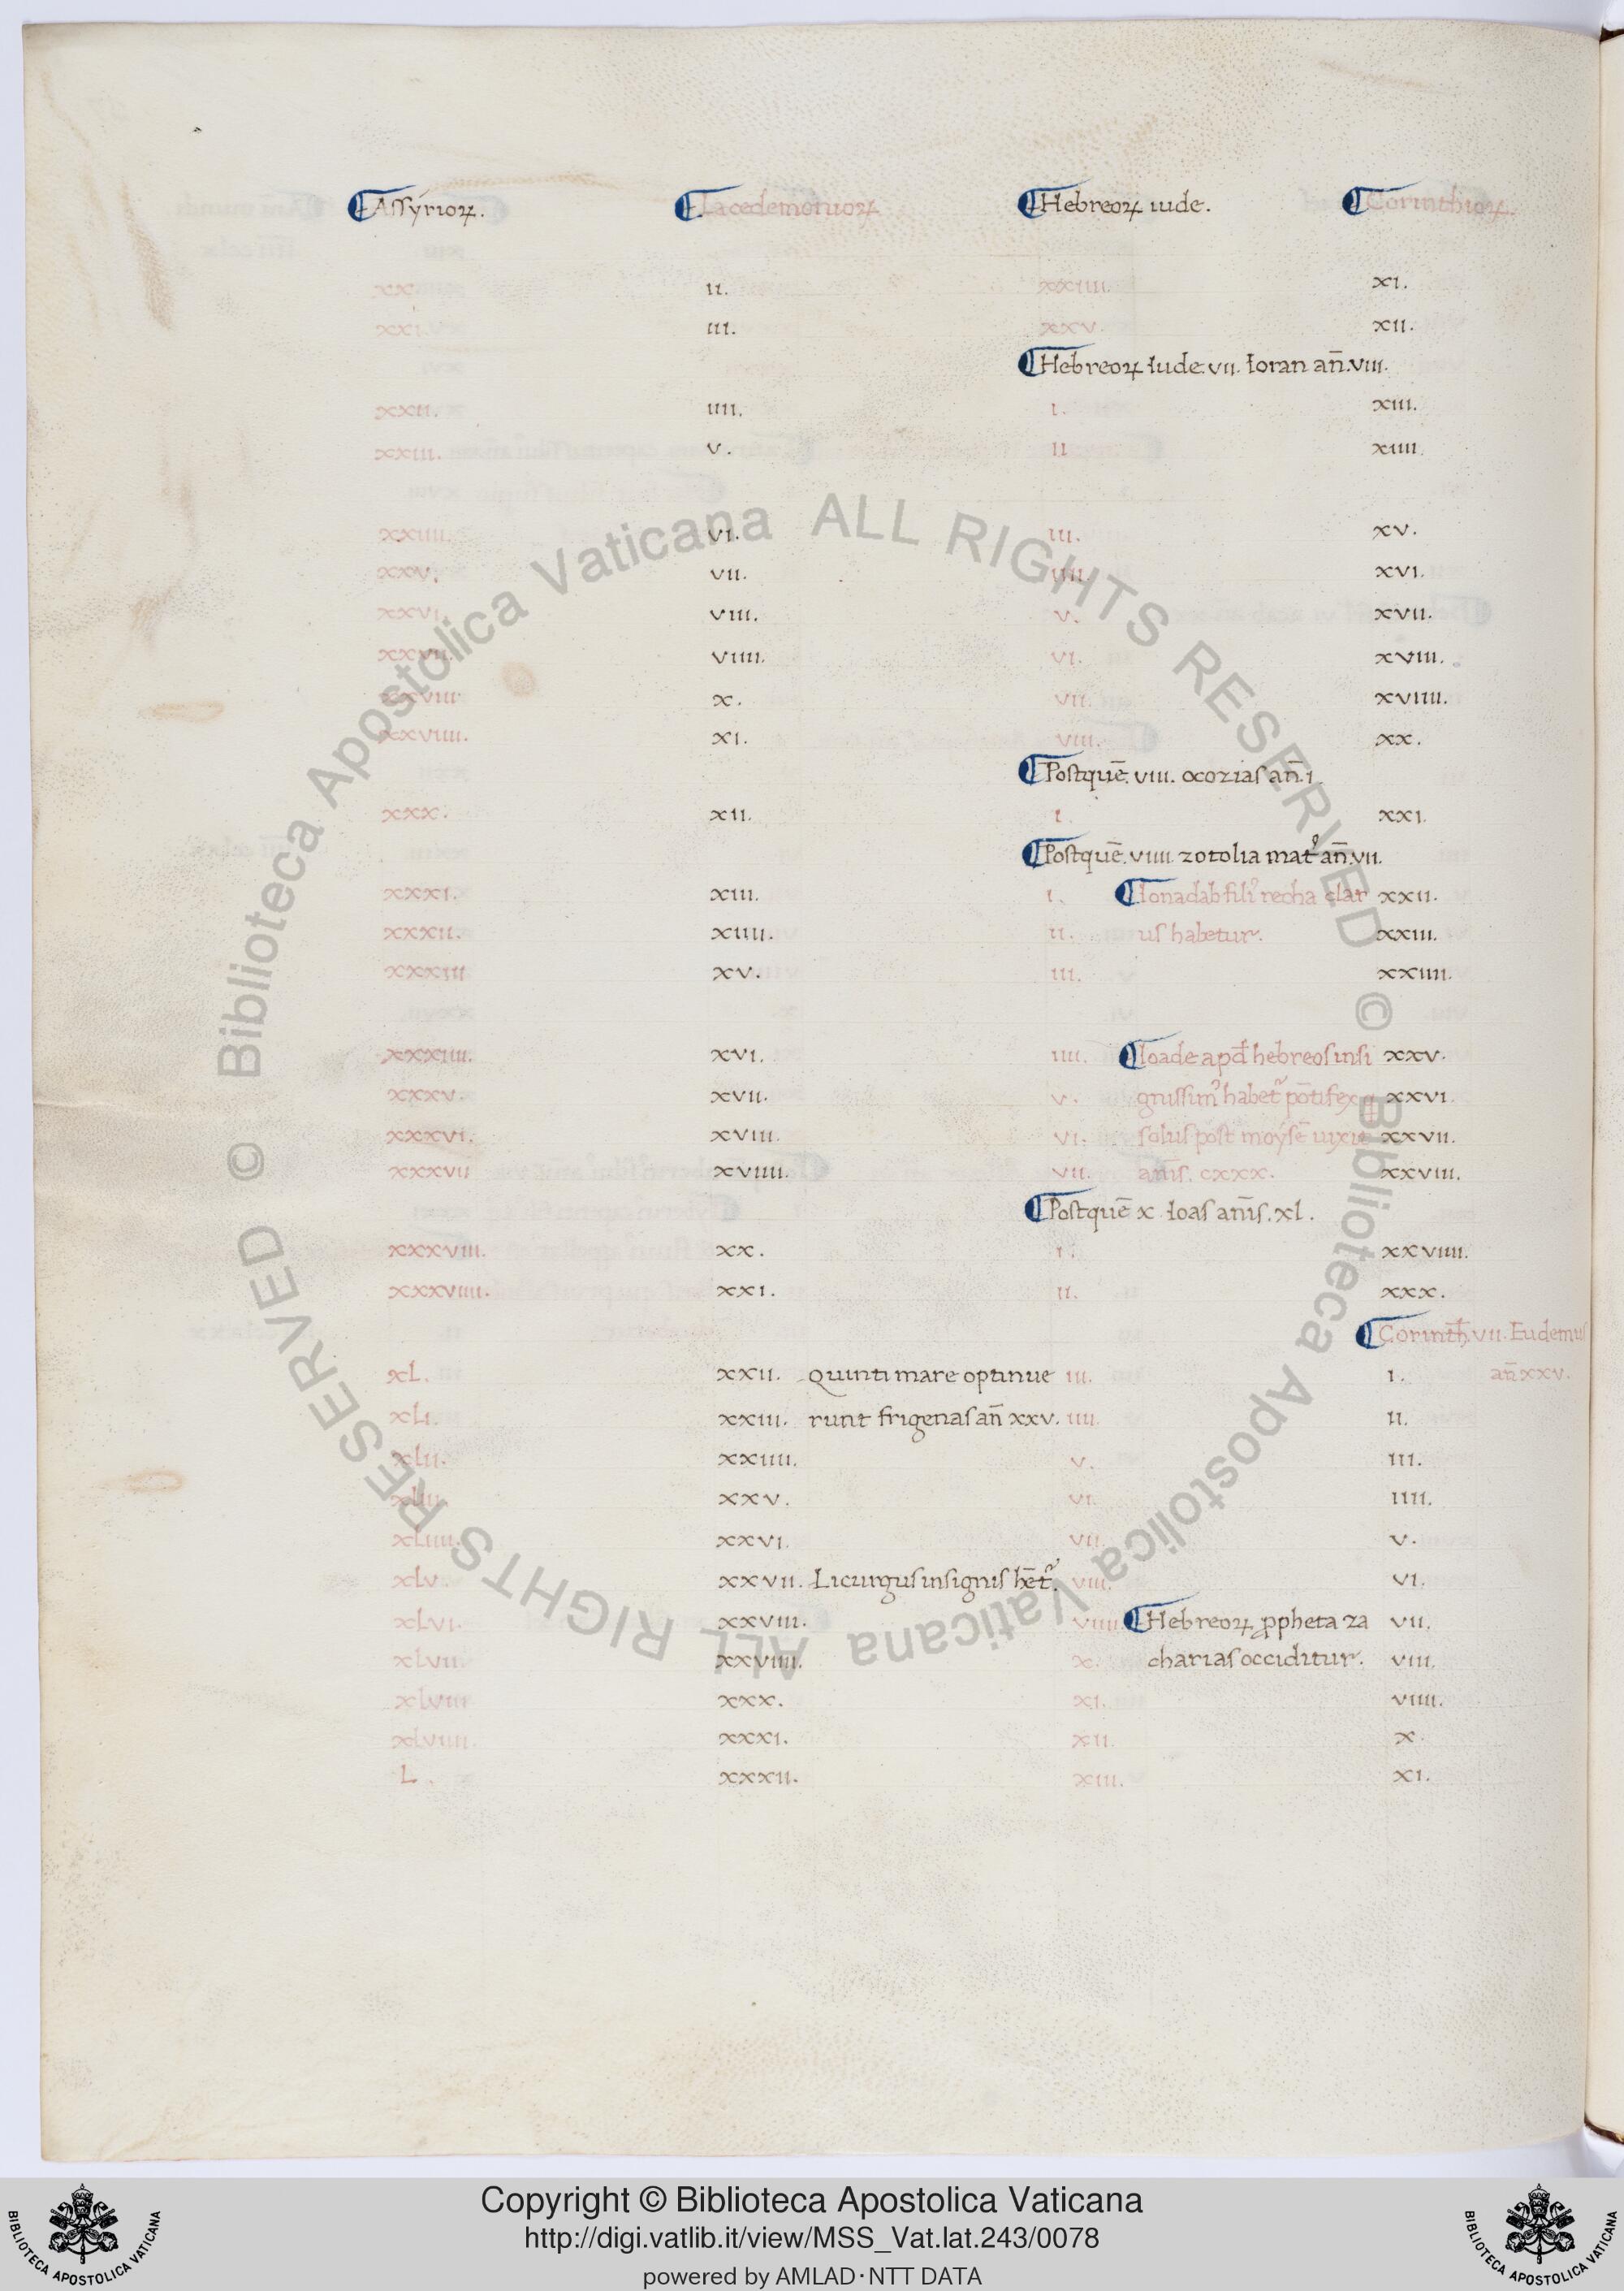 Assyrioꝝ. Lacedemonioꝝ Hebreoꝝ iude. Corinthioꝝ.
xx ii. xxiiii. xi.
xxi. iii. xxv. xii.
Hebreoꝝ iude. vii. ioran an̄. viii.
xxii. iiii. i. xiii.
xxiii. v. ii xiiii.
xxiiii. vi. iii. xv.
xxv. vii. iiii. xvi.
xxvi. viii. v. xvii.
xxvii. viiii. vi. xviii.
xxviii x. vii. xviiii.
xxviiii. xi. viii. xx.
Postquē. viii. ocozias an̄. i
xxx. xii. i. xxi.
Postquē. viiii. zotolia mat᾽ an̄. vii.
xxxi. xiii. i. Ionadab fili᾽ recha clar xxii.
xxxii. xiiii. ii. us habetur. xxiii.
xxxiii xv. iii. xxiiii.
xxxiiii. xvi. iiii. Ioade apd̄ hebreos insi xxv.
xxxv. xvii. v. gnissim᾽ habet᾽ pōtifex xxvi.
xxxvi. xviii. vi. solus post moẏsē uixit xxvii.
xxxvii xviiii. vii. an̄is. cxxx. xxviii.
Postquē x ioas an̄is. xl.
xxxviii. xx. i. xxviiii.
xxxviiii. xxi. ii. xxx.
Corinth̄. vii. Eudemus
xL. xxii. Quinti mare optinue iii. i. an̄ xxv.
xLi. xxiii. runt frigenas an̄ xxv. iiii. ii.
xLii. xxiiii. v. iii.
xLiii xxv. vi. iiii.
xLiiii. xxvi. vii. v.
xLv. xxvii. Licurgus insignis hēt᾽. viii. vi.
xLvi. xxviii. viiii. Hebreoꝝ ꝓpheta za vii.
xlvii. xxviiii. x. charias occiditur. viii.
xlviii xxx. xi. viiii.
xlviiii. xxxi. xii. x.
L. xxxii. xiii. xi.
© Biblioteca Apostolica Vaticana ALL RIGHTS RESERVED © Biblioteca Apostolica Vaticana ALL RIGHTS RESERVED
BIBLIOTECA APOSTOLICA VATICANA
Copyright © Biblioteca Apostolica Vaticana
http://digi.vatlib.it/view/MSS_Vat.lat.243/0078
powered by AMLAD·NTT DATA
BIBLIOTECA APOSTOLICA VATICANA